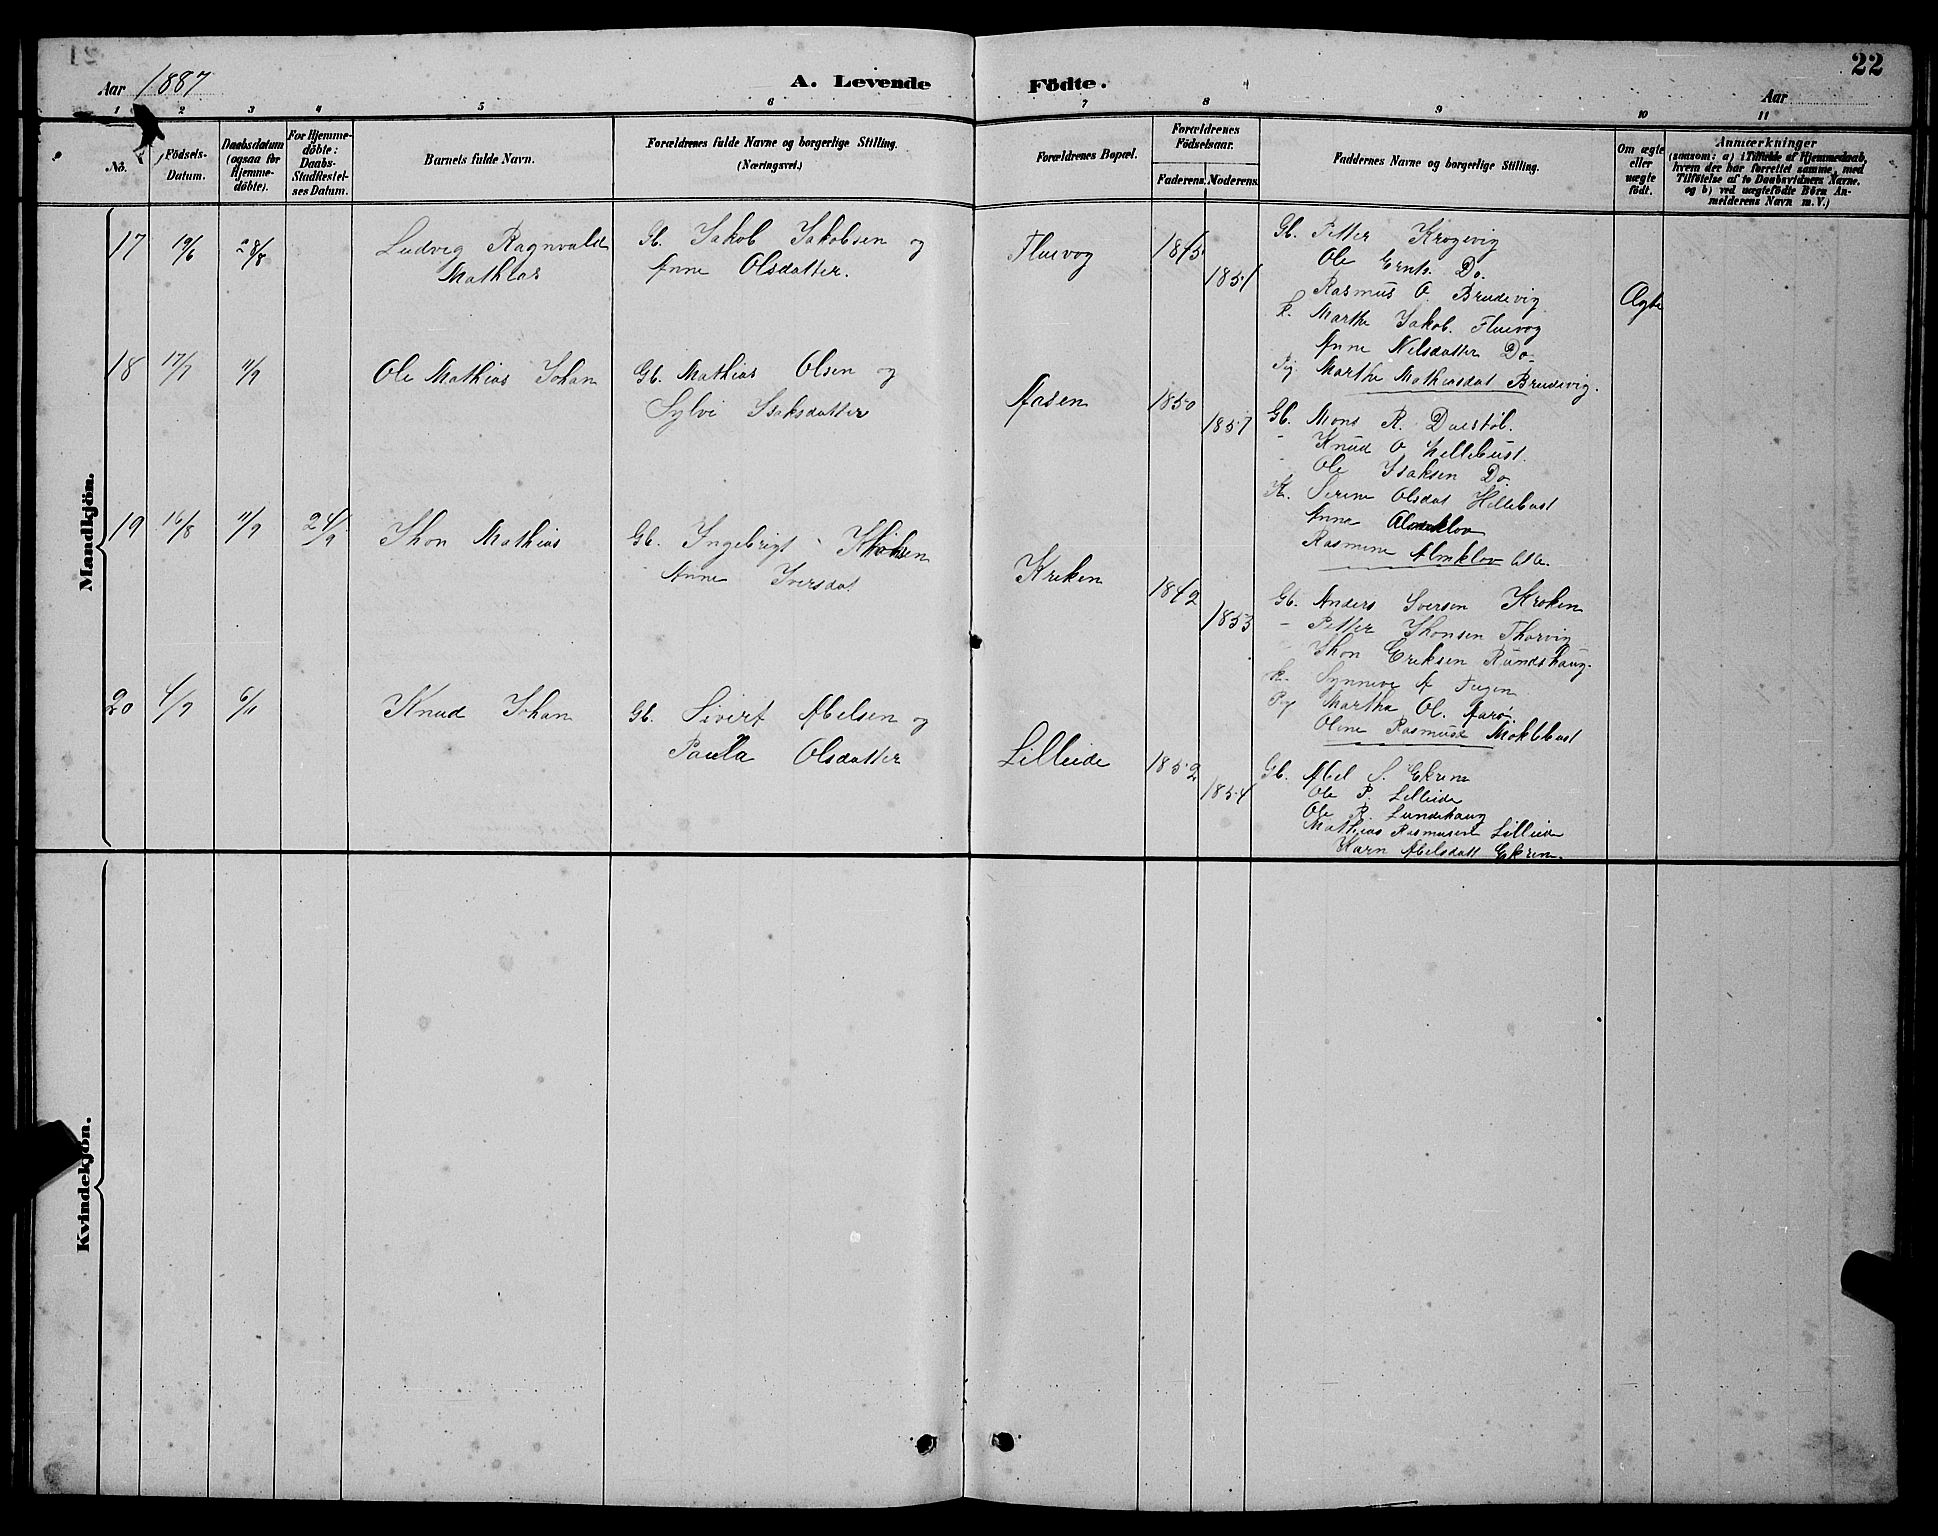 22
Aar 1887
A. Levende Födte.
Aar
1 2 3 4 5 6 7 8 9 10 11
No.
Födsels-Datum.
Daabsdatum (ogsaa for Hjemme-döbte).
For Hjemme-döbte: Daabs-Stadfestel-ses Datum.
Barnets fulde Navn.
Forældrenes fulde Navne og borgerlige Stilling. (Næringsvei.)
Forældrenes Bopæl.
Forældrenes Födselsaar.
Faderens. Moderens.
Faddernes Navne og borgerlige Stilling.
Om ægte eller uægte födt.
Anmærkninger
(saasom: a) i Tilfælde af Hjemmedaab,
hvem der har forrettet samme, med
Tilföielse af to Daabsvidners Navne.
og b) ved uægtefödte Börn An-
melderens Navn m. V.)
Mandkjön.
17 19/6 28/8 Ludvig Ragnvald
Mathias
Gb. Jakob Jakobsen og
Anne Olsdatter.
Fluevog 1845 1851
Gb. Petter Krogevig
Ole Ernts. Do.
Rasmus O. Brudevig
K. Marthe Jakob. Fluevog
Anne Nilsdatter Do.
Pig. Marthe Mathiasdat Brudevig.
Ægte
18 17/7 11/9 Ole Mathias Johan
Gb. Mathias Olsen og
Sylvi Isaksdatter
Aasen 1850 1857
Gb. Mons R. Dalstöl.
- Knud O. Hellebust.
- Ole Isaksen Do.
K. Serine Olsdat Hellebust
Anne Almklov
Rasmine Almklov
19 16/8 11/9 24/9 Jhon Mathias
Gb. Ingebrigt
Anne Iversdat
Kroken 1842 1853
Gb. Anders Iversen Kroken
- Petter Jhonsen Thorvig
Jhon Eriksen Rundshaug.
K. Synneve A
Pig Martha Ol. Aarö.
Oline Rasmusd Moklebust
20 4/9 6/11 Knud Johan
Gb. Sivert Abelsen og
Paula Olsdatter
Lilleide 1852 1854
Gb. Abel S. Ekrem
Ole P. Lilleide
Ole R. Lundehaug
Mathias Rasmusen Lilleide
Karn Abelsdatt Ekrem.
Kvindekjön.